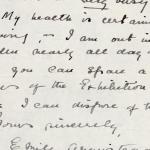 My health is certain
I am out in
nearly all day
you can spare a
of the Exhibition
I can dispose of th
Yours sincerely,